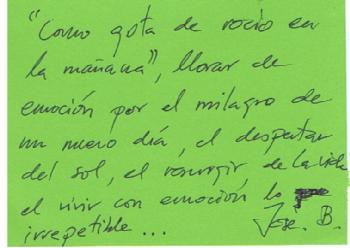 "Como gota de rocío en
la mañana", llorar de
emoción por el milagro de
un nuevo día, el despertar
del sol, el resurgir, de la vida
el vivir con emoción lo
irrepetible... José. B.